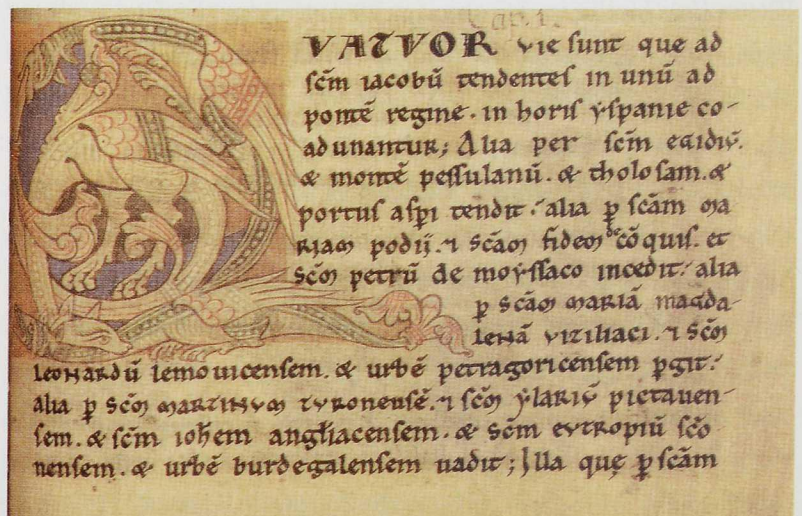 Cap. 1.
QVATVOR vie sunt que ad
scm̄ iacobū tendentes in unū ad
pontē regine · in horis yspanie co-
adunantur; Alia per scm̄ egidiū.
& montē pessulanū. & tholosam. &
portus aspi tendit; alia p̱ scām ma
riam podii. ⁊ scām fidem de cōquis. et
scm̄ petrū de moyssaco incedit; alia
p̱ scām mariā magda-
lenā viziliaci. ⁊ scm̄
leonardū lemouicensem. & urbē petragoricensem p̱git;
alia p̱ scm̄ martinum turonensē. ⁊ scm̄ ylariū pictauen-
sem. & scm̄ ioh̄em angliacensem. & scm̄ eutropiū scō
nensem. & urbē burdegalensem uadit; Illa quę p̱ scām